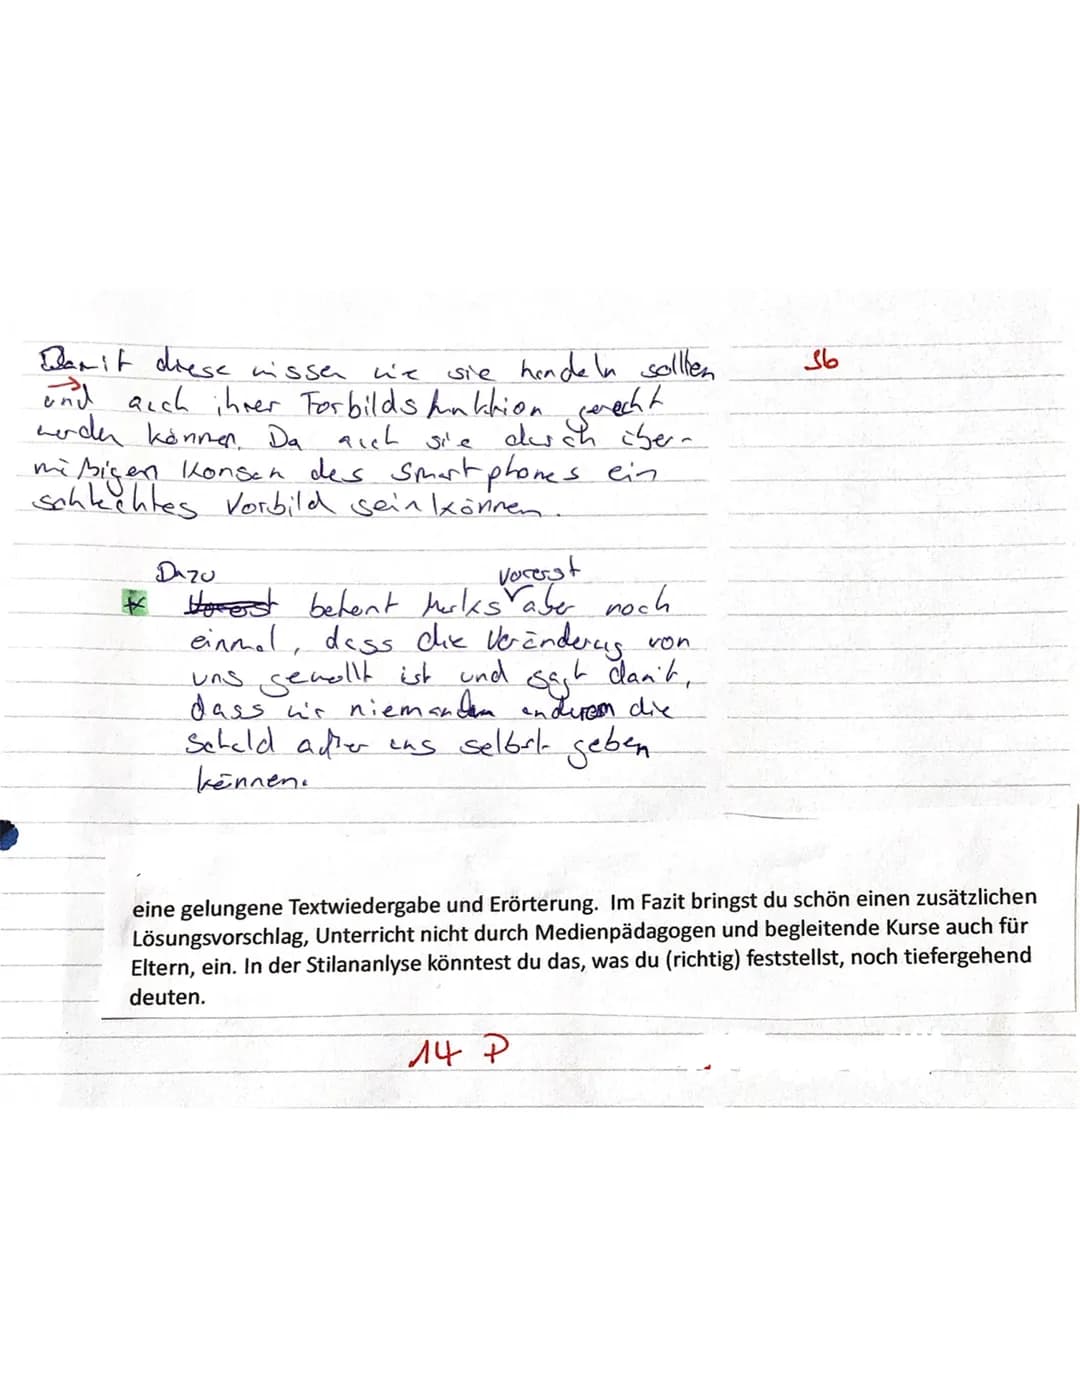 Damit diese wissen wie sie handeln sollten
Sb
und auch ihrer Forbildsfunktion gerecht
werden können. Da auch sie durch über-
mäßigen Konsum des Smartphones ein
schlechtes Vorbild sein können.
Dazu vorerst
* Vorerst betont aber noch
einmal, dass die Veränderung von
uns gewollt ist und sagt damit,
dass wir niemandem anderem die
Schuld außer uns selbst geben
können.
eine gelungene Textwiedergabe und Erörterung. Im Fazit bringst du schön einen zusätzlichen
Lösungsvorschlag, Unterricht nicht durch Medienpädagogen und begleitende Kurse auch für
Eltern, ein. In der Stilananlyse könntest du das, was du (richtig) feststellst, noch tiefergehend
deuten.
14 P